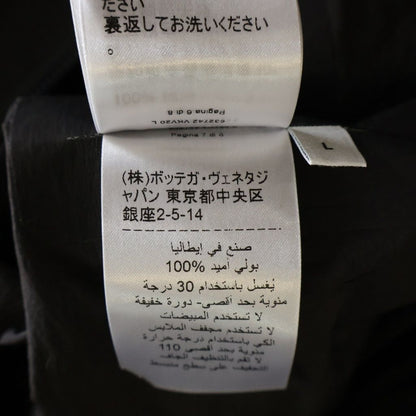 ださい
裏返してお洗いください
。
Pagina 6 di 8
632742 VKV20 L
Pagina 7 di 8
L
(株)ボッテガ・ヴェネタジ
ャパン 東京都中央区
銀座2-5-14
صنع في إيطاليا
بولي أميد %100
يُغسل باستخدام 30 درجة
مئوية بحد أقصى- دورة خفيفة
لا تستخدم المبيضات
لا تستخدم مجفف الملابس
الكي باستخدام درجة حرارة
مئوية بحد أقصى 110
لا تقم بالتنظيف الجاف
تجفيف على سطح منبسط